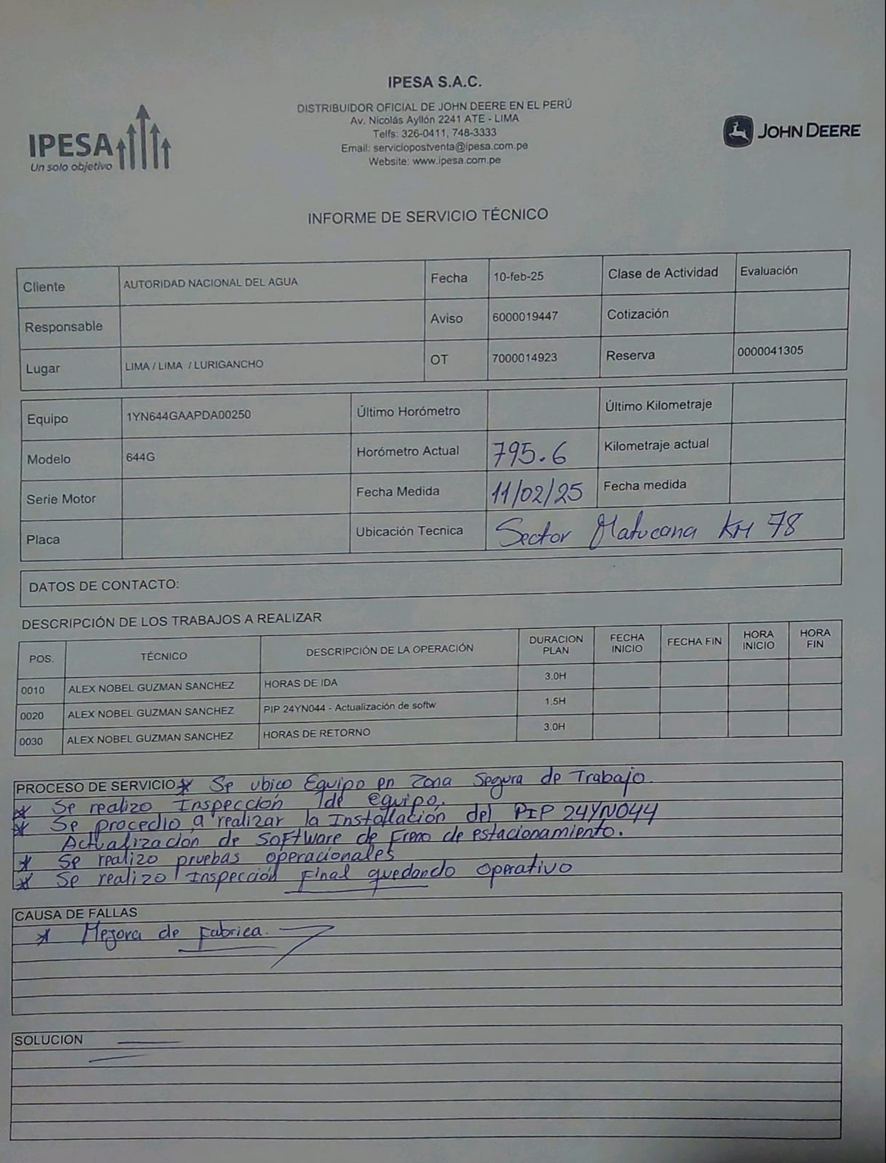 IPESA S.A.C.
DISTRIBUIDOR OFICIAL DE JOHN DEERE EN EL PERÚ
Av. Nicolás Ayllón 2241 ATE - LIMA
Telfs: 326-0411, 748-3333
Email: serviciopostventa@ipesa.com.pe
Website: www.ipesa.com.pe
IPESA
Un solo objetivo
JOHN DEERE
INFORME DE SERVICIO TÉCNICO
Cliente AUTORIDAD NACIONAL DEL AGUA Fecha 10-feb-25 Clase de Actividad Evaluación
Responsable Aviso 6000019447 Cotización
Lugar LIMA / LIMA / LURIGANCHO OT 7000014923 Reserva 0000041305
Equipo 1YN644GAAPDA00250 Último Horómetro Último Kilometraje
Modelo 644G Horómetro Actual 795.6 Kilometraje actual
Serie Motor Fecha Medida 11/02/25 Fecha medida
Placa Ubicación Tecnica Sector Matucana KM 78
DATOS DE CONTACTO:
DESCRIPCIÓN DE LOS TRABAJOS A REALIZAR
POS. TÉCNICO DESCRIPCIÓN DE LA OPERACIÓN DURACION PLAN FECHA INICIO FECHA FIN HORA INICIO HORA FIN
0010 ALEX NOBEL GUZMAN SANCHEZ HORAS DE IDA 3.0H
0020 ALEX NOBEL GUZMAN SANCHEZ PIP 24YN044 - Actualización de softw 1.5H
0030 ALEX NOBEL GUZMAN SANCHEZ HORAS DE RETORNO 3.0H
PROCESO DE SERVICIO * Se ubico Equipo en Zona Segura de Trabajo.
* Se realizo Inspección de equipo.
* Se procedio a realizar la Instalación del PIP 24YN044
Actualización de Software de Freno de estacionamiento.
* Se realizo pruebas operacionales
* Se realizo Inspección Final quedando Operativo
CAUSA DE FALLAS
* Mejora de Fabrica.
SOLUCION